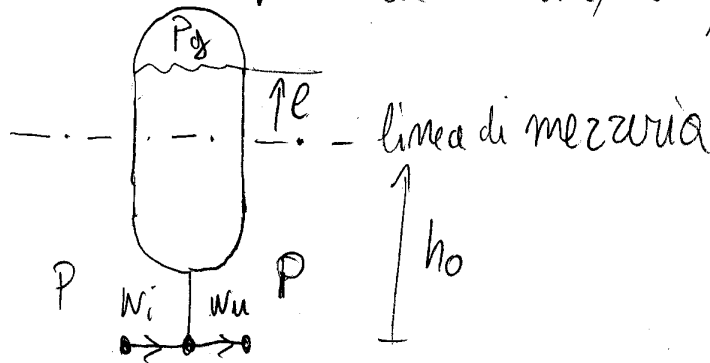 Pg
l
linea di mezzeria
h0
P
P
Wi
Wu